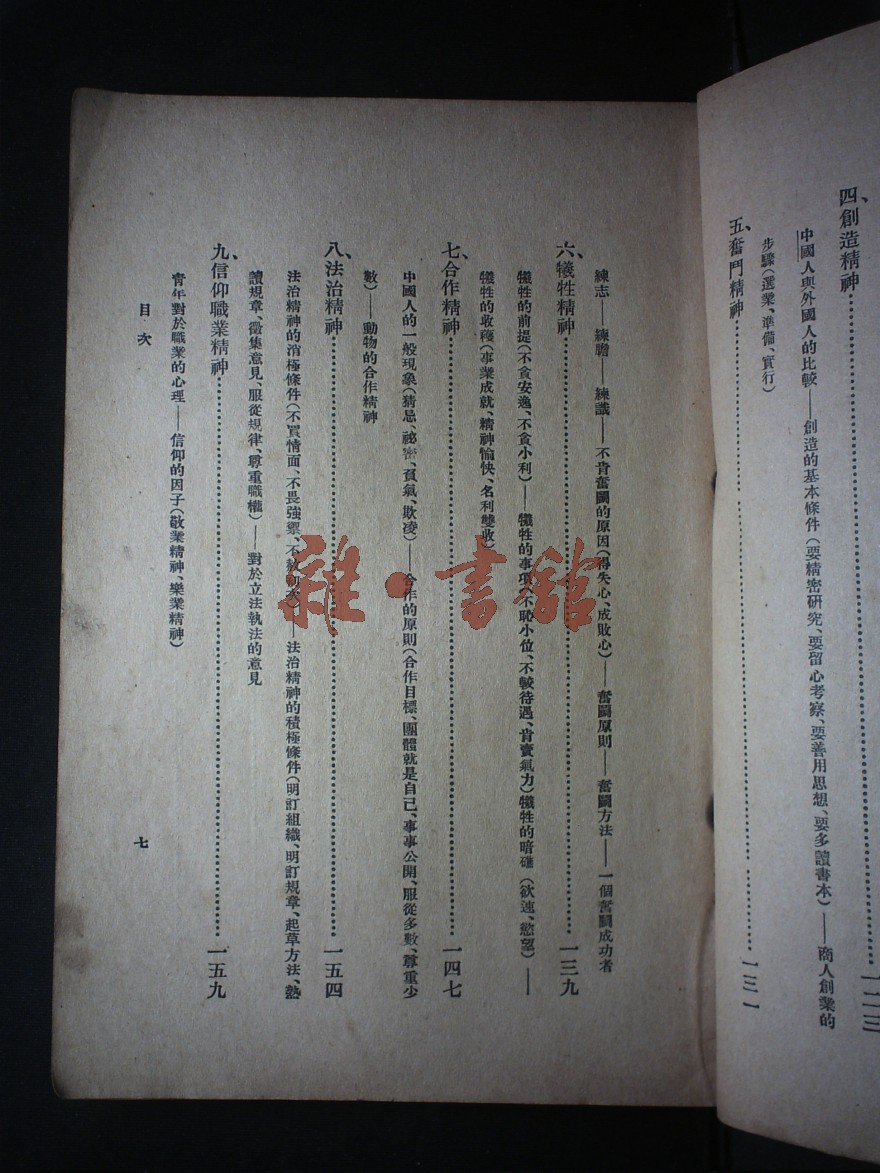 四、創造精神…………一二三
中國人與外國人的比較——創造的基本條件（要精密研究、要留心考察、要善用思想、要多讀書本）——商人創業的
步驟（選業、準備、實行）
五、奮鬥精神…………一三一
練志——練膽——練識——不肯奮鬭的原因（得失心、成敗心）——奮鬭原則——奮鬭方法——一個奮鬭成功者
六、犧牲精神…………一三九
犧牲的前提（不貪安逸、不貪小利）——犧牲的事項（不恥小位、不較待遇、肯賣氣力）犧牲的暗礁（欲速、慾望）——
犧牲的收穫（事業成就、精神愉快、名利雙收）
七、合作精神…………一四七
中國人的一般現象（猜忌、祕密、負氣、欺凌）——合作的原則（合作目標、團體就是自己、事事公開、服從多數、尊重少
數）——動物的合作精神
八、法治精神…………一五四
法治精神的消極條件（不買情面、不畏強禦、不）——法治精神的積極條件（明訂組織、明訂規章、起草方法、熟
讀規章、徵集意見、服從規律、尊重職權）——對於立法執法的意見
九、信仰職業精神…………一五九
青年對於職業的心理——信仰的因子（敬業精神、樂業精神）
目次
七
雜·書館